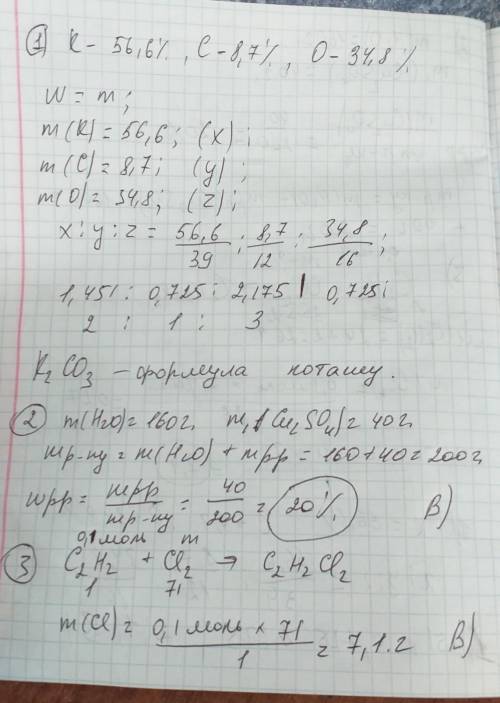 ① K - 56,6%, C - 8,7%, O - 34,8%
W = m;
m(K) = 56,6; (x);
m(C) = 8,7; (y);
m(O) = 34,8; (z);
x : y : z = 56,6/39 : 8,7/12 : 34,8/16;
1,451 : 0,725 : 2,175 | 0,725;
2 : 1 : 3
K₂CO₃ - формула поташу.
② m(H₂O) = 160г, m(Cu₂SO₄) = 40г
mр-ну = m(H₂O) + mрр = 160 + 40 = 200г
wрр = mрр/mр-ну = 40/200 = 20% B)
0,1 моль m
③ C₂H₂ + Cl₂ → C₂H₂Cl₂
1 71
m(Cl) = 0,1 моль × 71/1 = 7,1 г B)